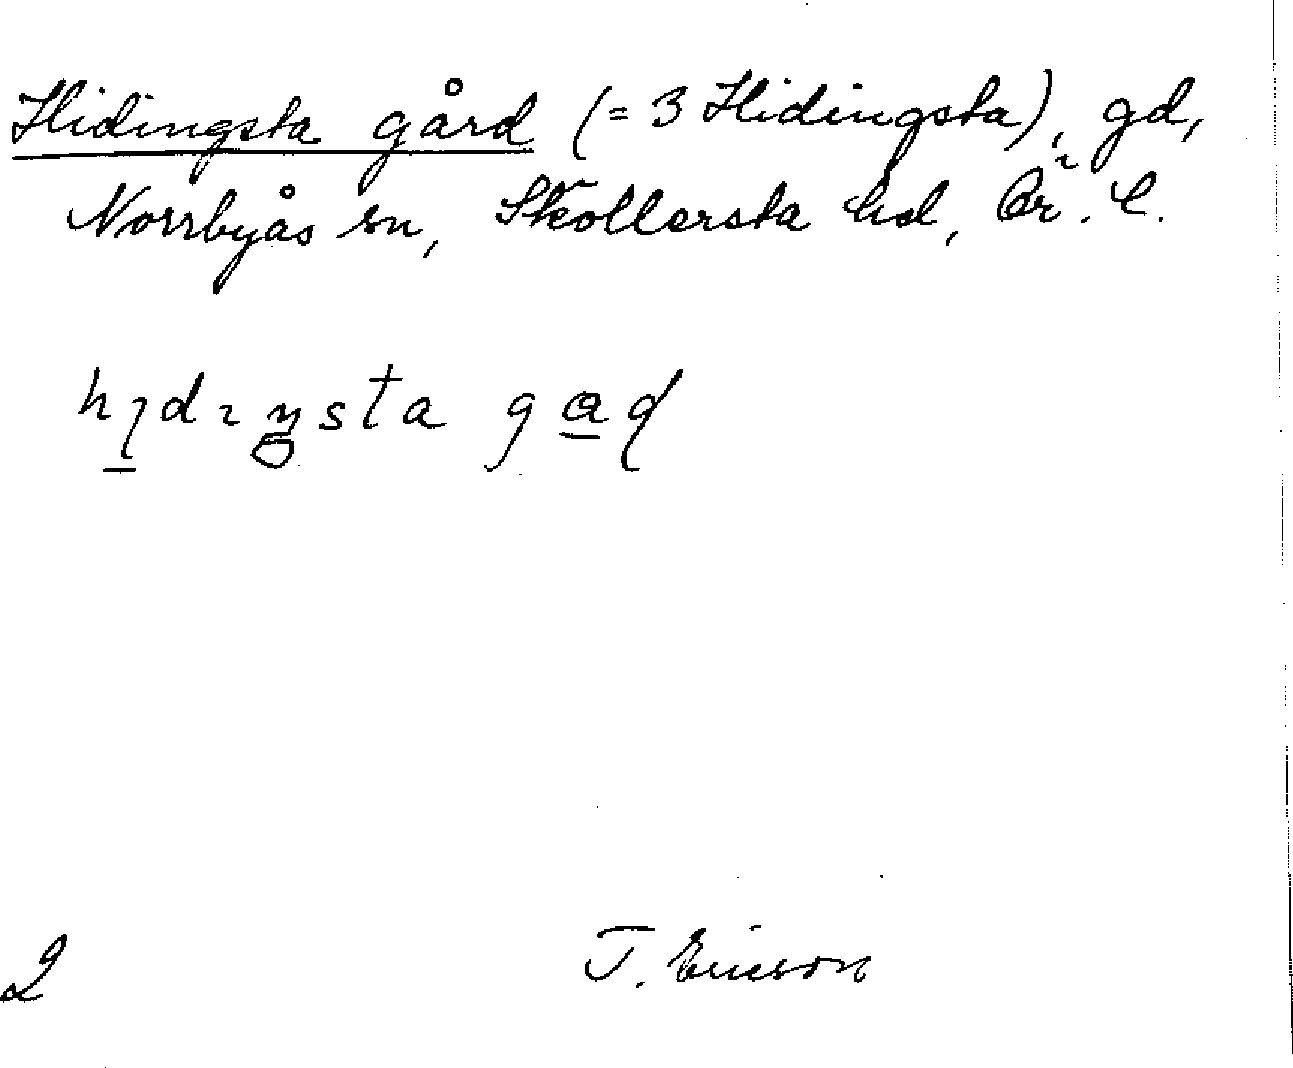 Hidingsta gård (= 3 Hidingsta), gd,
Norrbyås sn, Sköllersta hd, Ör. l.
gad
2
T. Ericson